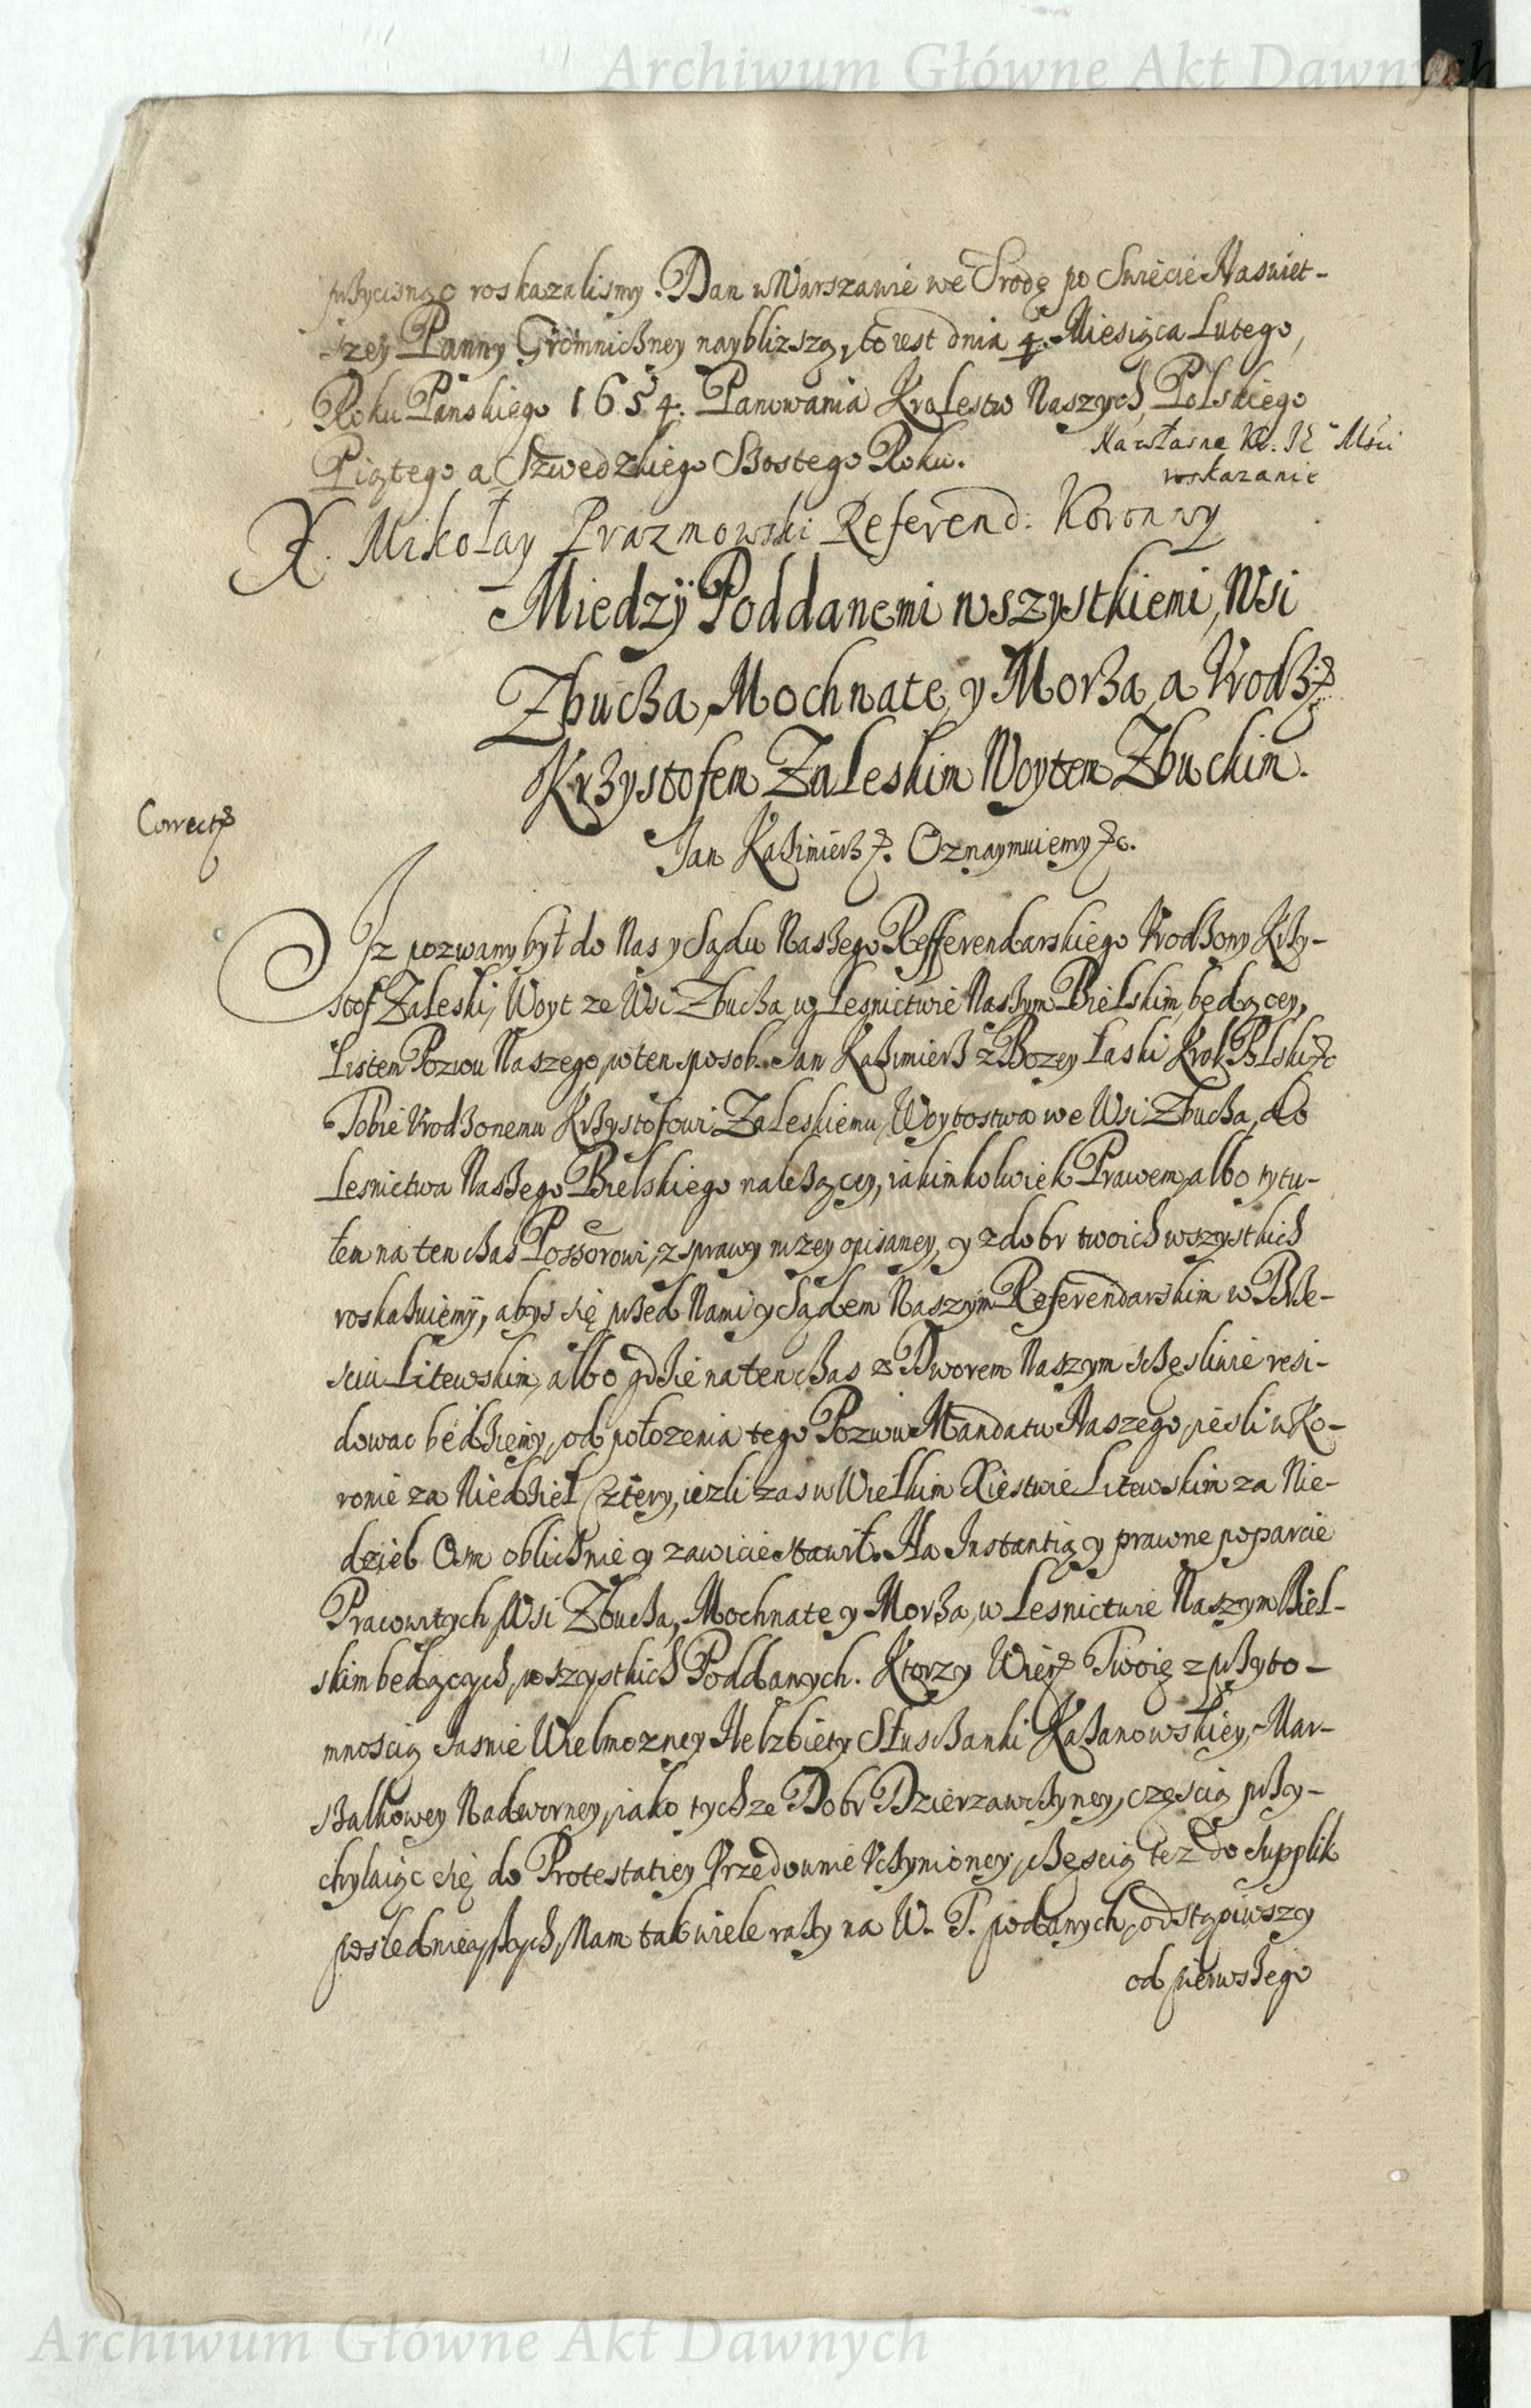 Archiwum Główne Akt Dawnych
przycisnąc roskazalismy. Dan w Warszawie we Srodę po Swięcie Naswięt-
szey Panny Gromniczney naybliższą, to iest dnia 4. Miesiąca Lutego,
Roku Panskiego 1654. Panowania Krolestw Naszych Polskiego
Piątego a Szwedzkiego Szostego Roku.
Na własne Kr. JE Mści
roskazanie
X. Mikołay Prazmowski Referend: Koronny
Miedzÿ Poddanemi wszystkiemi, Wsi
Zbucza, Mochnate, y Morza, a Vrodz:
Krzystofem Zaleskim Woytem Zbuckim.
Correct
Jan Kazimierz &. Oznaymuiemy &c.
Iz pozwany był do Nas y Sądu Naszego Refferendarskiego Vrodzony Krzy-
stof Zaleski, Woyt ze Wsi Zbucza, w Lesnictwie Naszym Bielskim będącey,
Listem Pozwu Naszego, w ten sposob. Jan Kazimierz z Bozey Łaski Krol Polski &c
Tobie Vrodzonemu Krzystofowi Zaleskiemu, Woytostwa we Wsi Zbucza, do
Lesnictwa Naszego Bielskiego nalezącey, iakimkolwiek Prawem, albo tytu-
łem na ten czas Possorowi, z sprawy nizey opisaney, y z dobr twoich wszystkich
roskazuiemÿ, abys się przed Nami y Sądem Naszym Referendarskim w Brze-
sciu Litewskim, albo gdzie na ten czas z Dworem Naszym szczęsliwie resi-
dowac będziemy, od połozenia tego Pozwu Mandatu Naszego, iesli w Ko-
ronie za Niedziel Cztery, iezli zas w Wielkim Xięstwie Litewskim za Nie-
dziel Osm oblicznie y zawicie stawił. Na Instantią y prawne poparcie
Pracowitych, Wsi Zbucza, Mochnate y Morza, w Lesnictwie Naszym Biel-
skim będących, wszystkich Poddanych. Ktorzy Wier Twoię z przyto-
mnoscią Jasnie Wielmozney Helzbiety Słuszczanki Kazanowskiey, Mar-
szalkowey Nadworney, iako tychze Dobr Dzierzawczyney, częscią przy-
chylaiąc się do Protestatiey Przedo mnie Vczynioney, częscią tez do supplik
poslednieyszych, Nam tak wiele razy na W. T. podanych, odstąpiwszy
od pierwszego
Archiwum Główne Akt Dawnych